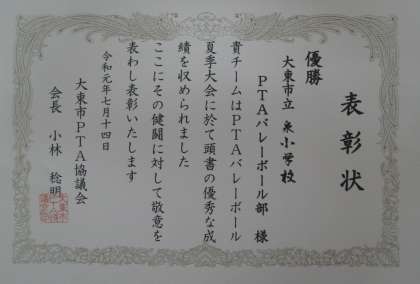 表彰状
優勝
大東市立 泉小学校
PTAバレーボール部 様
貴チームはPTAバレーボール
夏季大会に於て頭書の優秀な成
績を収められました
ここにその健闘に対して敬意を
表わし表彰いたします
令和元年七月十四日
大東市PTA協議会
会長 小林 稔明